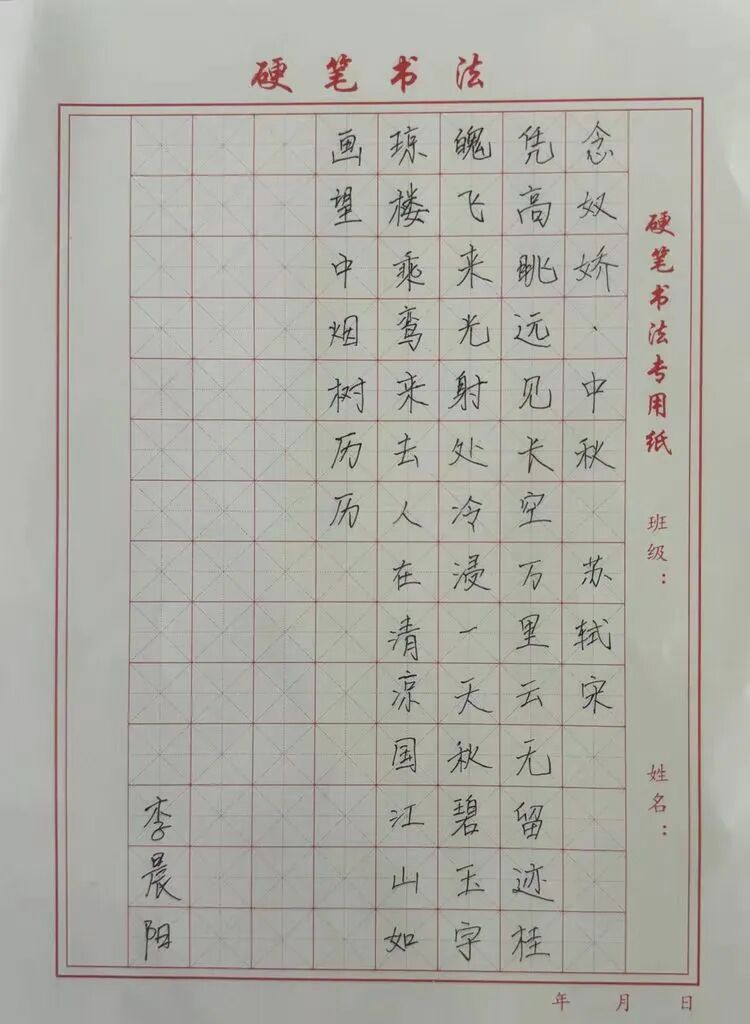 硬笔书法
硬笔书法专用纸 班级： 姓名：
念奴娇·中秋 苏轼宋
凭高眺远见长空万里云无留迹桂
魄飞来光射处冷浸一天秋碧玉宇
琼楼乘鸾来去人在清凉国江山如
画望中烟树历历
李晨阳
年 月 日